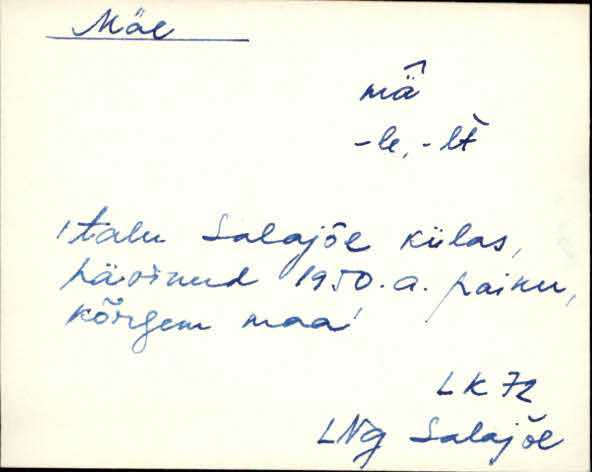 Mäe
mä̂
-le, -lt̀
'talu Salajõe külas,
hävinud 1950.a. paiku,
kõrgem maa'
LK 72
LNg Salajõe